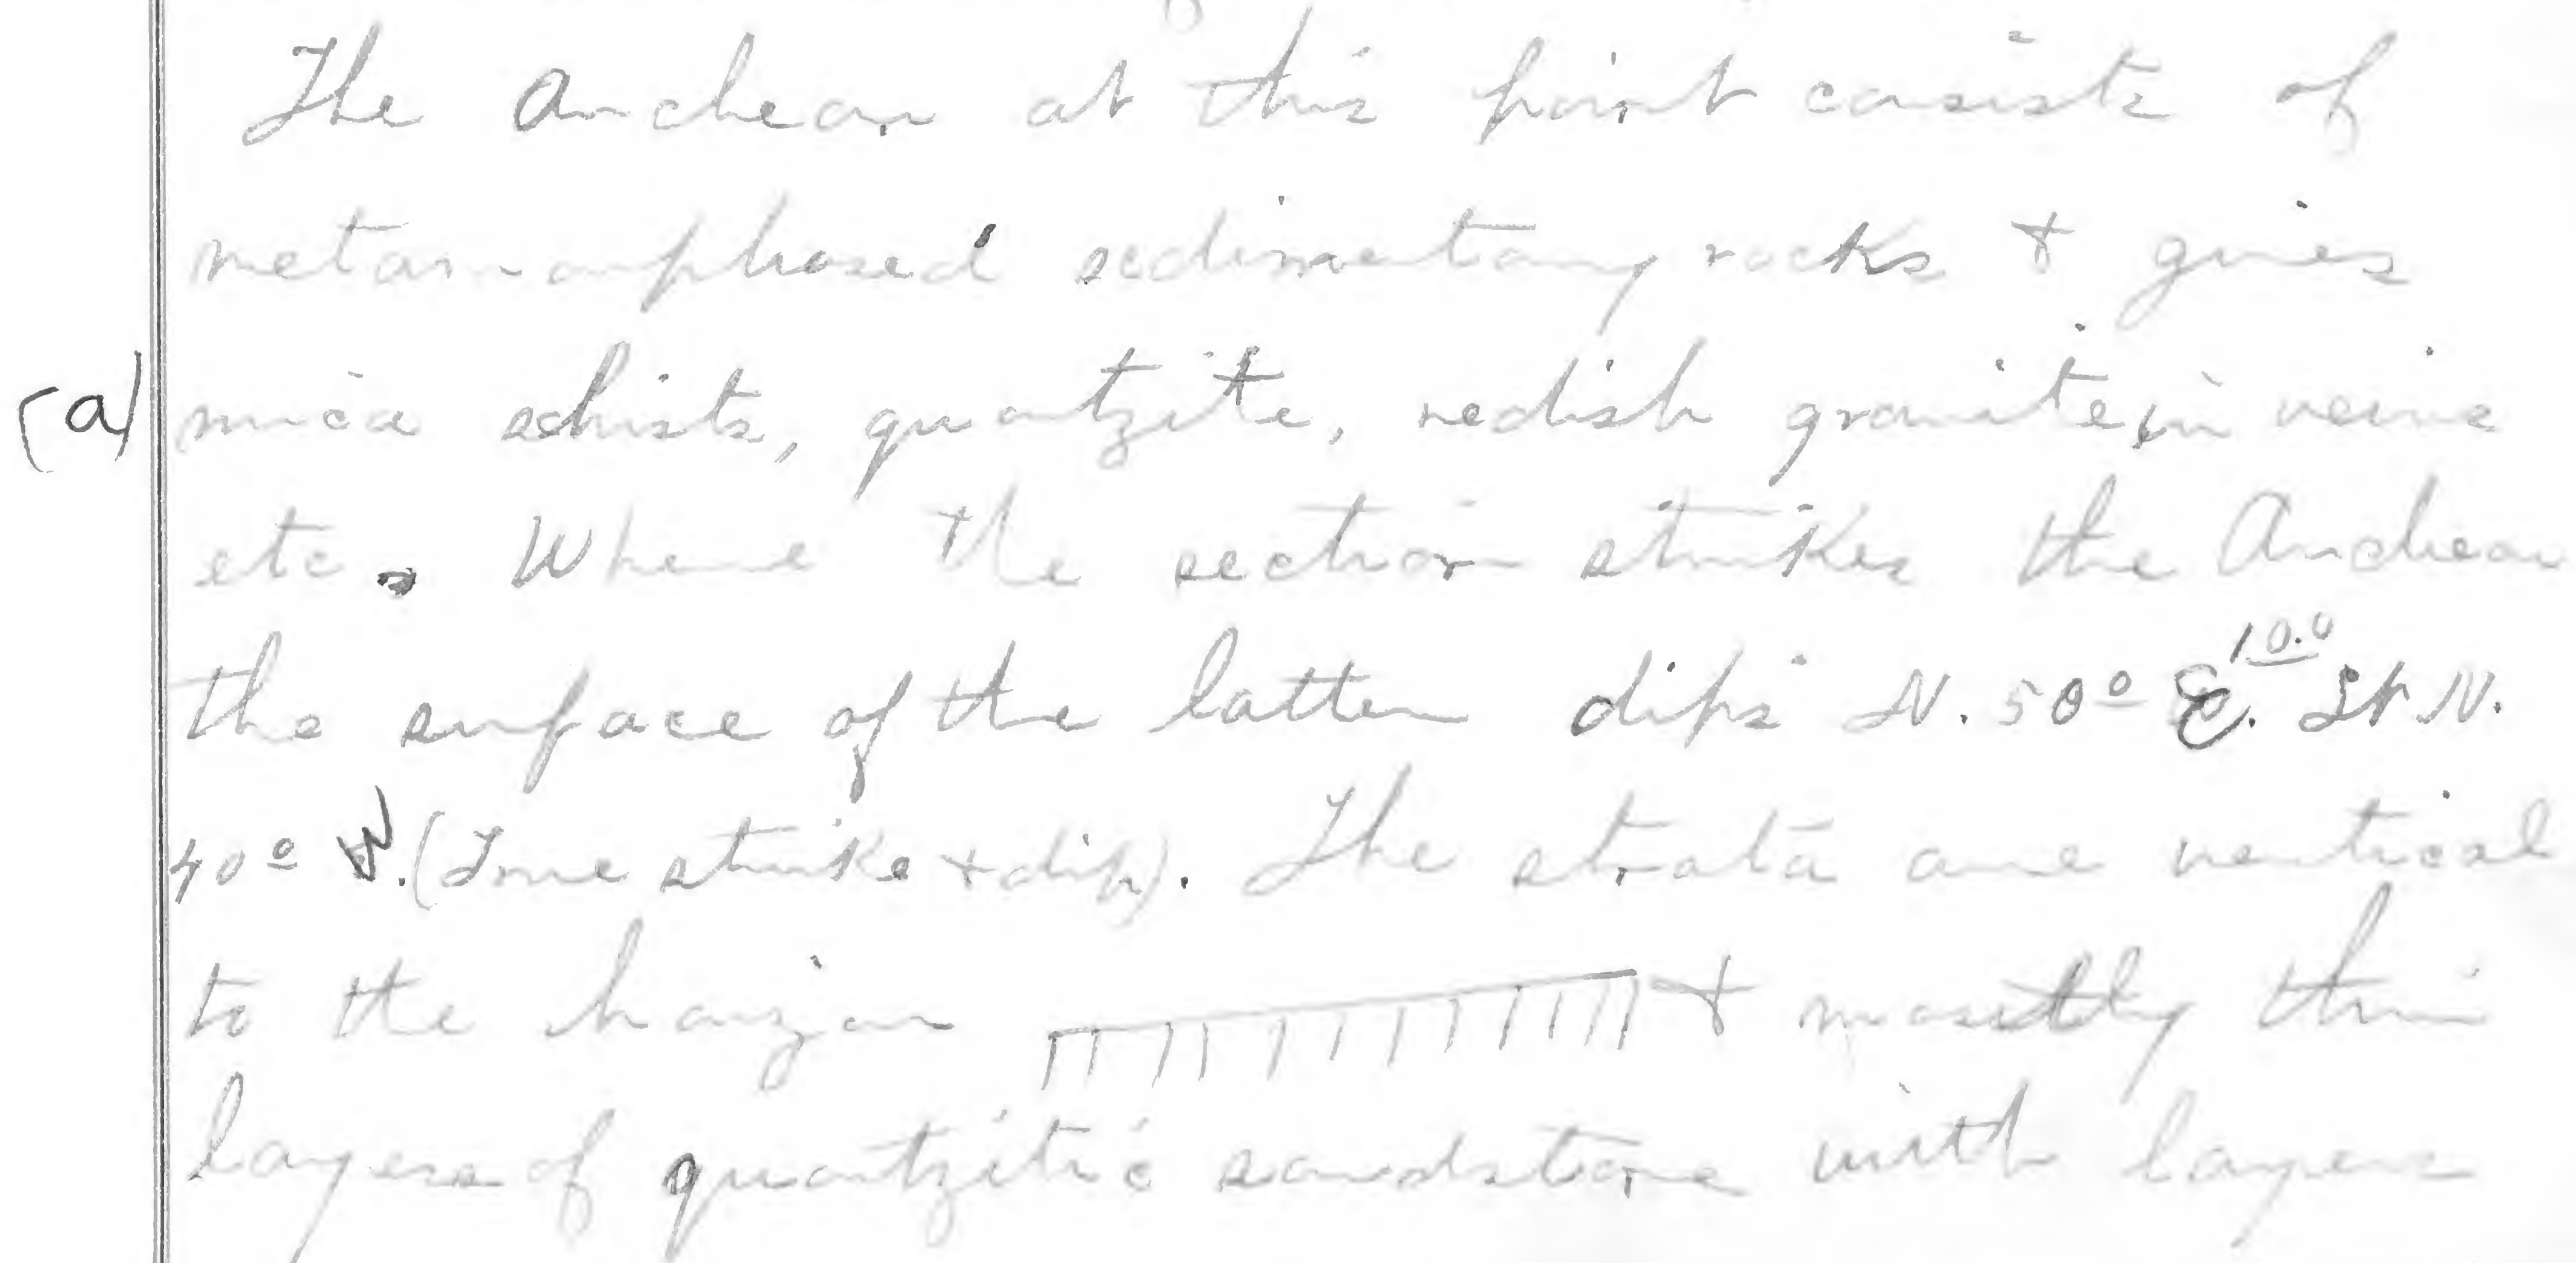 The Archean at this point consists of
metamorphosed sedimentary rocks & gives
(a) mica schists, quartzite, redish granite, in veins
etc. Where the section strikes the Archean
the surface of the latter dips N. 50º E. 10.º St N.
40º W. (True strike & dip). The strata are vertical
to the horizon & mostly thin
layers of quartzitic sandstone with layers